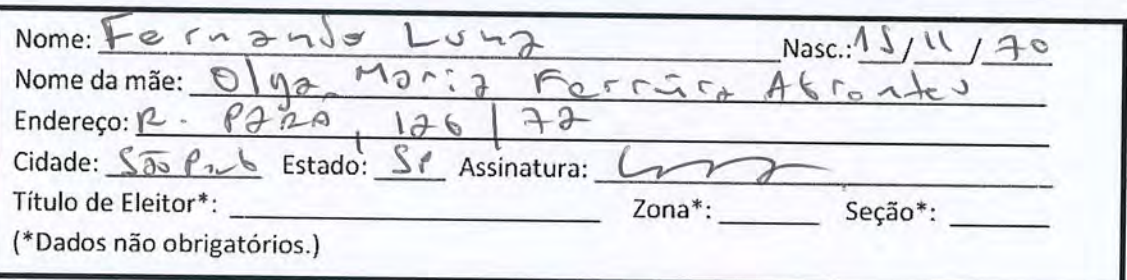 Nome: Fernando Luna Nasc.: 15/11/70
Nome da mãe: Olga Maria Ferreira Abrantes
Endereço: R. PARA, 126 / 72
Cidade: São Paulo Estado: SP Assinatura:
Título de Eleitor*: Zona*: Seção*:
(*Dados não obrigatórios.)